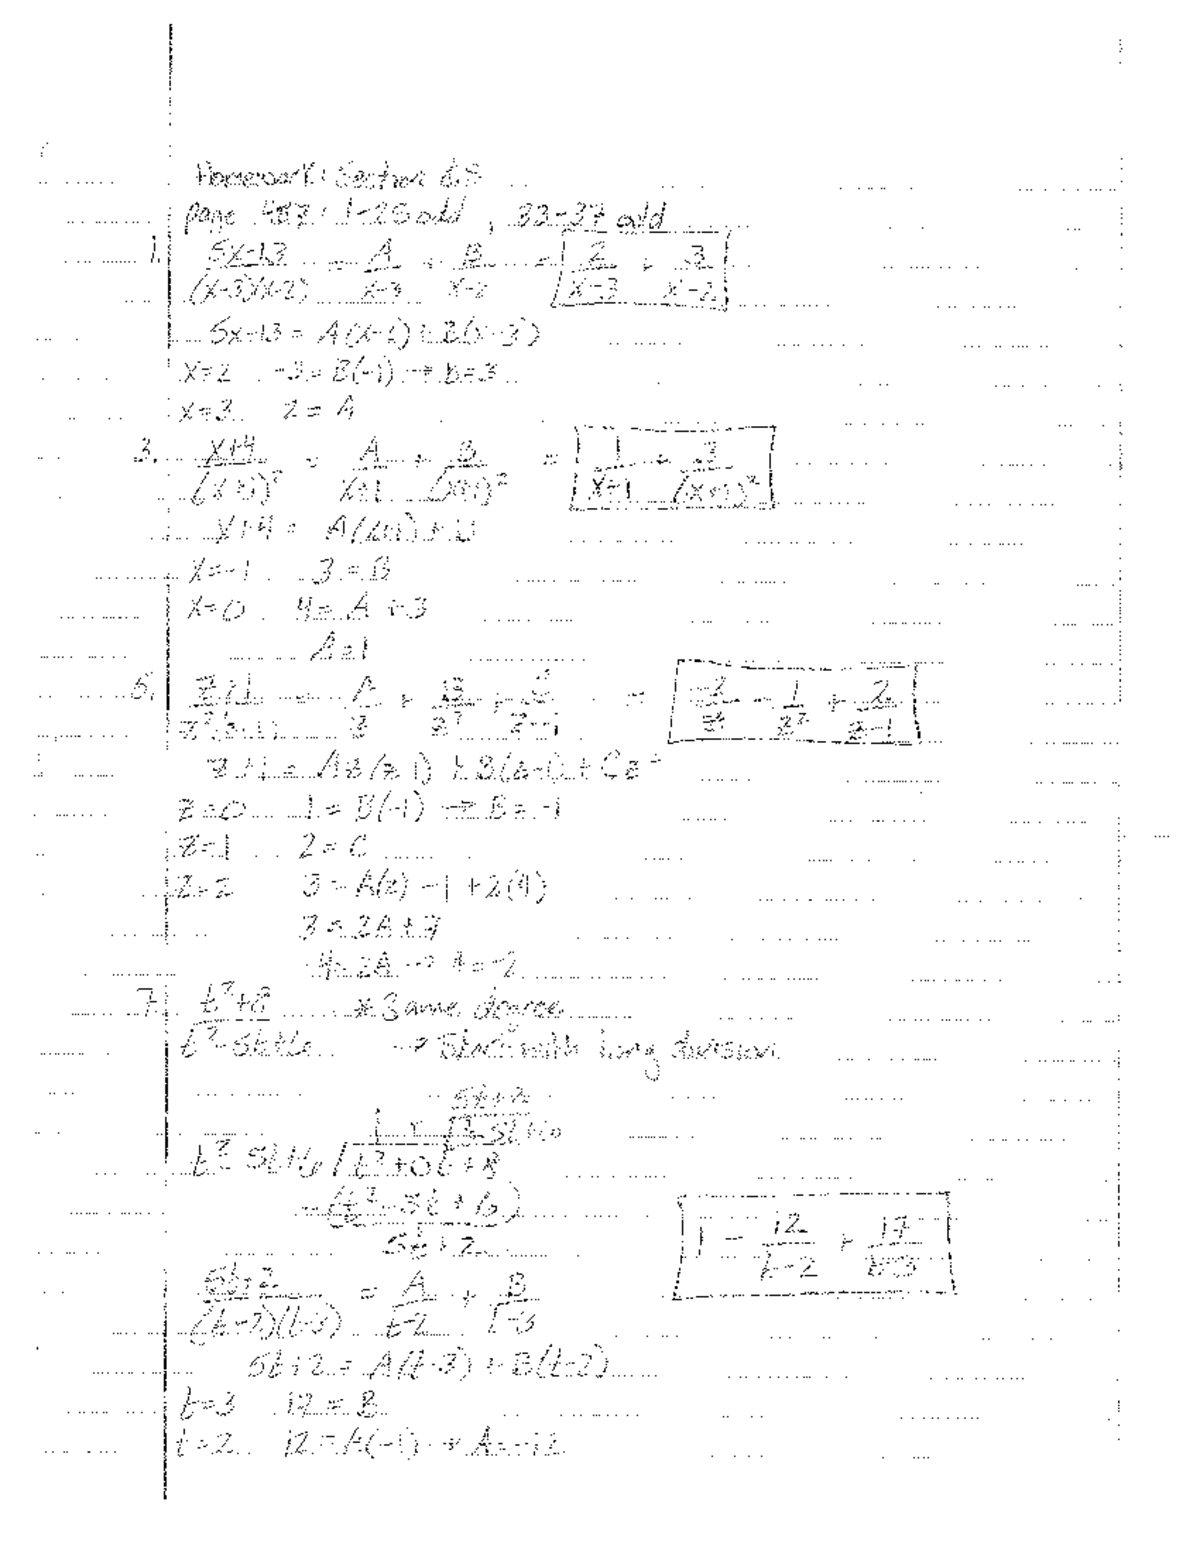 Homework: Section 6.5
page 487: 1-25 odd, 33-37 odd
1. (5x-13)/((x-3)(x-2)) = A/(x-3) + B/(x-2) = 2/(x-3) + 3/(x-2)
5x-13 = A(x-2) + B(x-3)
x=2 -3 = B(-1) → B=3
x=3 2 = A
3. (x+4)/(x+1)² = A/(x+1) + B/(x+1)² = 1/(x+1) + 3/(x+1)²
x+4 = A(x+1) + B
x=-1 3 = B
x=0 4 = A + 3
A=1
5. (z+1)/(z²(z-1)) = A/z + B/z² + C/(z-1) = -2/z - 1/z² + 2/(z-1)
z+1 = Az(z-1) + B(z-1) + Cz²
z=0 1 = B(-1) → B = -1
z=1 2 = C
z=2 3 = A(2) - 1 + 2(4)
3 = 2A + 7
-4 = 2A → A = -2
7. (t²+8)/(t²-5t+6) * Same degree
→ Start with long division
5t+2
1 + t²-5t+6
t²-5t+6 / t²+0t+8
-(t²-5t+6)
5t+2
1 - 12/(t-2) + 17/(t-3)
(5t+2)/((t-2)(t-3)) = A/(t-2) + B/(t-3)
5t+2 = A(t-3) + B(t-2)
t=3 17 = B
t=2 12 = A(-1) → A = -12